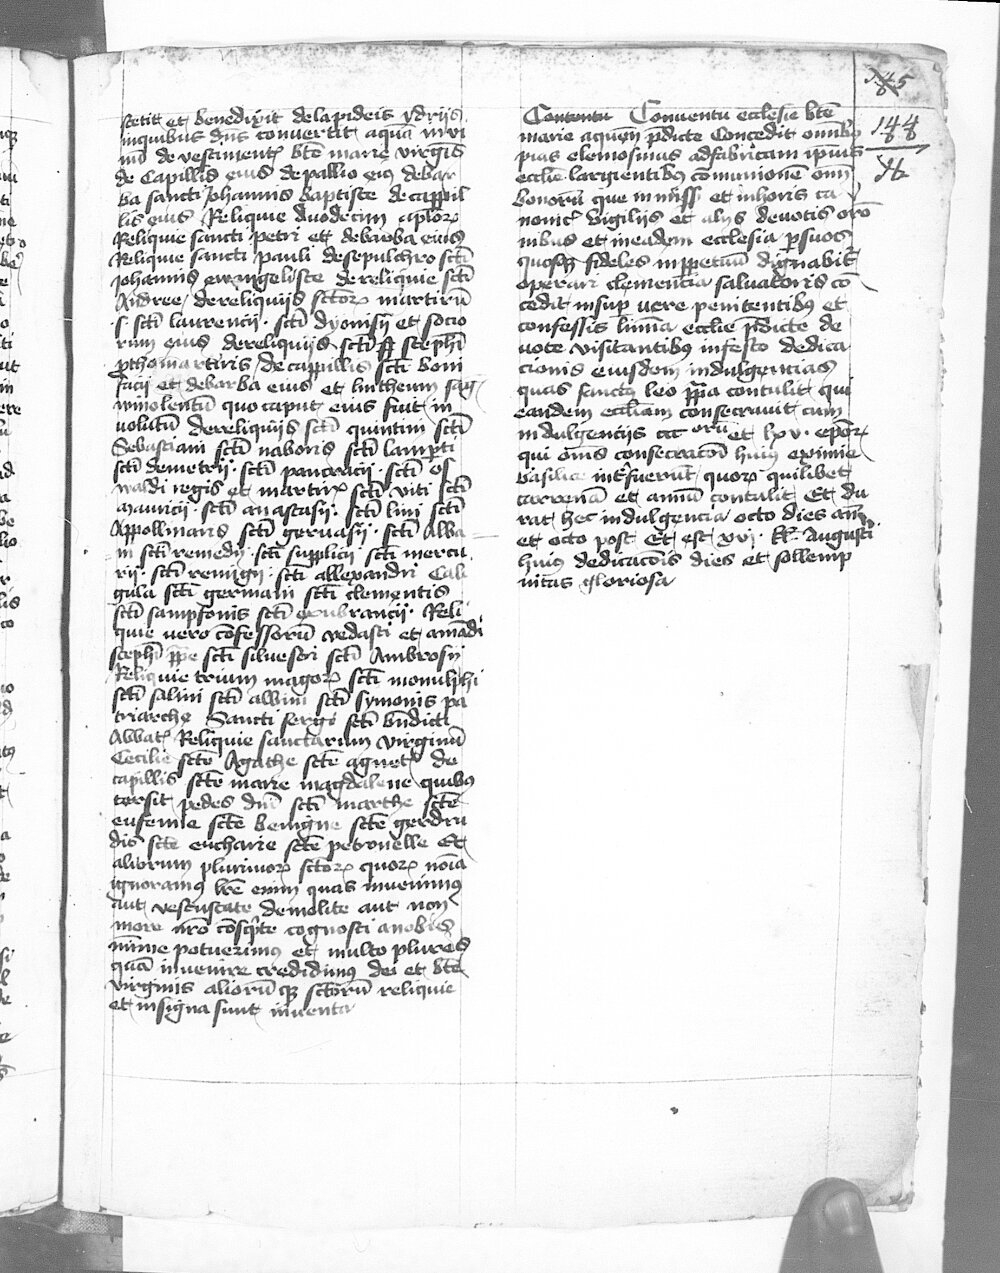 stetit et benedixit de lapideis ydriis
in quibus dns convertit aquā in vi
nū de vestiment bte marie virgis
de Capillis eius de pallio eius de bar
ba sancti Johannis baptiste de cappil
lis eius Reliquie duodecim aplorꝝ
Reliquie sancti petri et de barba eius
Reliquie sancti pauli de sepulchro scti
Johannis ewangeliste de reliquie scti
Andree de reliquiis sctorꝝ martirū
s scti laurencij scti dyonisij et socio
rum eius de reliquiis scti stephī
pthomartiris de cappillis scti boni
facij et de barba eius et lintheum sag
winolentū quo caput eius fuit in
volutū de reliquiis scti quintini scti
Sebastiani scti naboris scti lampti
scti demetrij scti pancracij scti os
waldi regis et martirꝝ scti viti scti
mauricij scti anastasij scti lini scti
Appollinaris scti gervasij scti Alba
ni scti remedij scti supplicij scti mercu
rij scti remigij scti allexandri Cali
gula scti germani scti clementis
scti sampsonis scti exubrancij Reli
quie vero cōfessorū vedasti et amādi
stephī ppe scti silvestri scti Ambrosij
Reliquie trium magorꝝ scti monulphi
scti salvii scti albini scti symonis pa
triarche Sancti sergi scti bndicti
Abbat Reliquie sanctarum virginū
Cecilie scte Agathe scte agnet de
capillis scte marie magdalene quibus
tersit pedes dni scti marthe scte
eufemie scte benigne scte gerdru
dis scte eucharie scte petronelle Et
aliorum plurimorꝝ sctorꝝ quorꝝ noia
ignoramus bre enim quas invenimus
aut vestustate demolite aut non
more nro cōscpte cognosci a nobis
mīme potuerimus et multo plures
quā invenire credidimus dei et bte
virginis aliorūqꝫ sctorū reliquie
et insigna sunt inventa
Conventu Conventu ecclesie bte
marie aquen pdicte Concedit omibꝰ
pias elemosinas ad fabricam ipius
ecclie largientibus comunionē omī
bonorū que in miss et in horis ca
nonic vigiliis et aliis devotis oro
nibus et in eadem ecclesia p suos
quosqꝫ fideles in ppetuū dignabit
operari clemencia salvatoris cō
cedit insup vere penitentibus et
confessis limīa ecclie pdicte de
vote visitantibus in festo dedica
cionis eiusdem indulgencias
quas sanctus leo ppa contulit qui
eandem eccliam consecravit cum
indulgenciis ccc orū et lxv epōrꝝ
qui oms consecracōi huius eximie
basilice intfuerūt quorꝝ quilibet
carrenā et annū contulit Et du
rat hec indulgencia octo dies añ
et octo post Et est xvj kl Augusti
huius dedicacōis dies et sollemp
nitas gloriosa
145
144